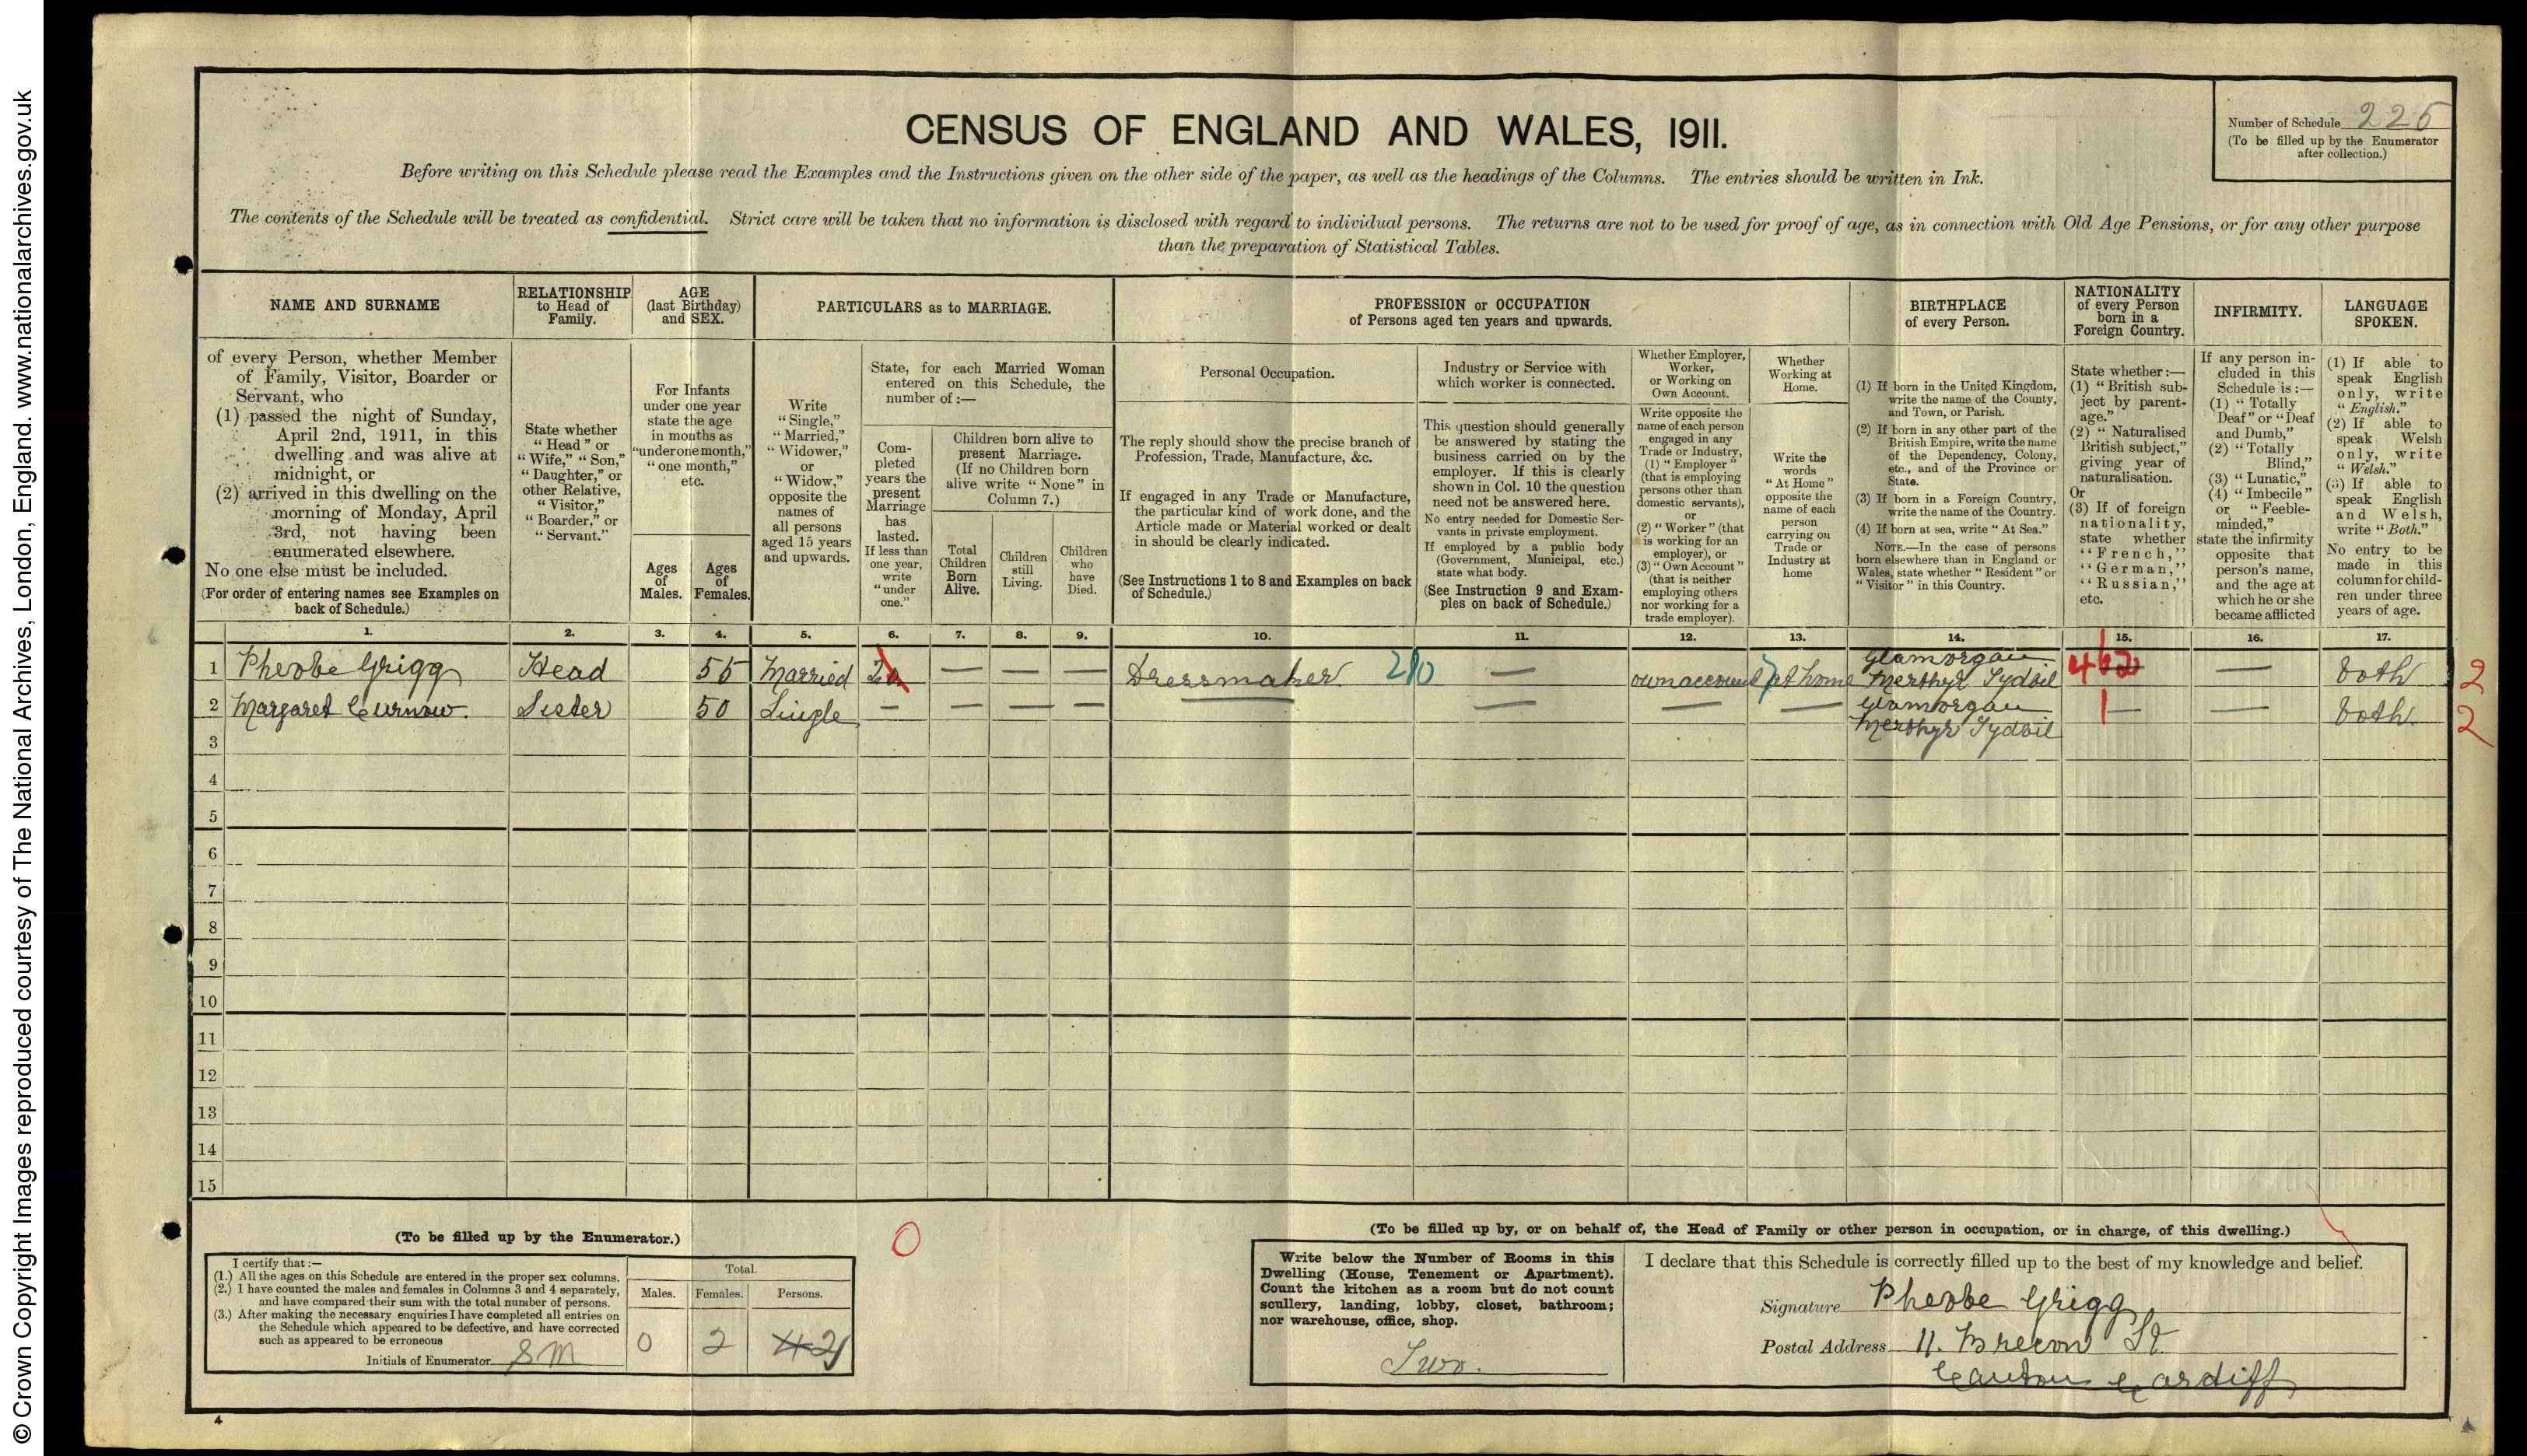 © Crown Copyright Images reproduced courtesy of The National Archives, London, England. www.nationalarchives.gov.uk
CENSUS OF ENGLAND AND WALES, 1911.
Number of Schedule 225
(To be filled up by the Enumerator
after collection.)
Before writing on this Schedule please read the Examples and the Instructions given on the other side of the paper, as well as the headings of the Columns. The entries should be written in Ink.
The contents of the Schedule will be treated as confidential. Strict care will be taken that no information is disclosed with regard to individual persons. The returns are not to be used for proof of age, as in connection with Old Age Pensions, or for any other purpose
than the preparation of Statistical Tables.
NAME AND SURNAME
RELATIONSHIP
to Head of
Family.
AGE
(last Birthday)
and SEX.
PARTICULARS as to MARRIAGE.
PROFESSION or OCCUPATION
of Persons aged ten years and upwards.
BIRTHPLACE
of every Person.
NATIONALITY
of every Person
born in a
Foreign Country.
INFIRMITY.
LANGUAGE
SPOKEN.
of every Person, whether Member
of Family, Visitor, Boarder or
Servant, who
(1) passed the night of Sunday,
April 2nd, 1911, in this
dwelling and was alive at
midnight, or
(2) arrived in this dwelling on the
morning of Monday, April
3rd, not having been
enumerated elsewhere.
No one else must be included.
(For order of entering names see Examples on
back of Schedule.)
State whether
"Head" or
"Wife," "Son,"
"Daughter," or
other Relative,
"Visitor,"
"Boarder," or
"Servant."
For Infants
under one year
state the age
in months as
"under one month,"
"one month,"
etc.
Ages
of
Males.
Ages
of
Females.
Write
"Single,"
"Married,"
"Widower,"
or
"Widow,"
opposite the
names of
all persons
aged 15 years
and upwards.
State, for each Married Woman
entered on this Schedule, the
number of :—
Com-
pleted
years the
present
Marriage
has
lasted.
If less than
one year,
write
"under
one."
Children born alive to
present Marriage.
(If no Children born
alive write "None" in
Column 7.)
Total
Children
Born
Alive.
Children
still
Living.
Children
who
have
Died.
Personal Occupation.
The reply should show the precise branch of
Profession, Trade, Manufacture, &c.
If engaged in any Trade or Manufacture,
the particular kind of work done, and the
Article made or Material worked or dealt
in should be clearly indicated.
(See Instructions 1 to 8 and Examples on back
of Schedule.)
Industry or Service with
which worker is connected.
This question should generally
be answered by stating the
business carried on by the
employer. If this is clearly
shown in Col. 10 the question
need not be answered here.
No entry needed for Domestic Ser-
vants in private employment.
If employed by a public body
(Government, Municipal, etc.)
state what body.
(See Instruction 9 and Exam-
ples on back of Schedule.)
Whether Employer,
Worker,
or Working on
Own Account.
Write opposite the
name of each person
engaged in any
Trade or Industry,
(1) "Employer"
(that is employing
persons other than
domestic servants),
or
(2) "Worker" (that
is working for an
employer), or
(3) "Own Account"
(that is neither
employing others
nor working for a
trade employer).
Whether
Working at
Home.
Write the
words
"At Home"
opposite the
name of each
person
carrying on
Trade or
Industry at
home
(1) If born in the United Kingdom,
write the name of the County,
and Town, or Parish.
(2) If born in any other part of the
British Empire, write the name
of the Dependency, Colony,
etc., and of the Province or
State.
(3) If born in a Foreign Country,
write the name of the Country.
(4) If born at sea, write "At Sea."
NOTE.—In the case of persons
born elsewhere than in England or
Wales, state whether "Resident" or
"Visitor" in this Country.
State whether :—
(1) "British sub-
ject by parent-
age."
(2) "Naturalised
British subject,"
giving year of
naturalisation.
Or
(3) If of foreign
nationality,
state whether
"French,"
"German,"
"Russian,"
etc.
If any person in-
cluded in this
Schedule is :—
(1) "Totally
Deaf" or "Deaf
and Dumb,"
(2) "Totally
Blind,"
(3) "Lunatic,"
(4) "Imbecile"
or "Feeble-
minded,"
state the infirmity
opposite that
person's name,
and the age at
which he or she
became afflicted
(1) If able to
speak English
only, write
"English."
(2) If able to
speak Welsh
only, write
"Welsh."
(3) If able to
speak English
and Welsh,
write "Both."
No entry to be
made in this
column for child-
ren under three
years of age.
1. 2. 3. 4. 5. 6. 7. 8. 9. 10. 11. 12. 13. 14. 15. 16. 17.
1 Pheobe Grigg Head 55 Married — — — Dressmaker 280 — own account 7 at home Glamorgan Merthyr Tydvil — both 2
2 Margaret Curnow. Sister 50 Single — — — — — — — — Glamorgan Merthyr Tydvil — — both. 2
3
4
5
6
7
8
9
10
11
12
13
14
15
(To be filled up by the Enumerator.)
I certify that :—
(1.) All the ages on this Schedule are entered in the proper sex columns.
(2.) I have counted the males and females in Columns 3 and 4 separately,
and have compared their sum with the total number of persons.
(3.) After making the necessary enquiries I have completed all entries on
the Schedule which appeared to be defective, and have corrected
such as appeared to be erroneous
Initials of Enumerator SM
Total.
Males. Females. Persons.
0 2 2
0
(To be filled up by, or on behalf of, the Head of Family or other person in occupation, or in charge, of this dwelling.)
Write below the Number of Rooms in this
Dwelling (House, Tenement or Apartment).
Count the kitchen as a room but do not count
scullery, landing, lobby, closet, bathroom;
nor warehouse, office, shop.
Two.
I declare that this Schedule is correctly filled up to the best of my knowledge and belief.
Signature Pheobe Grigg
Postal Address 11. Brecon St
Canton Cardiff
4